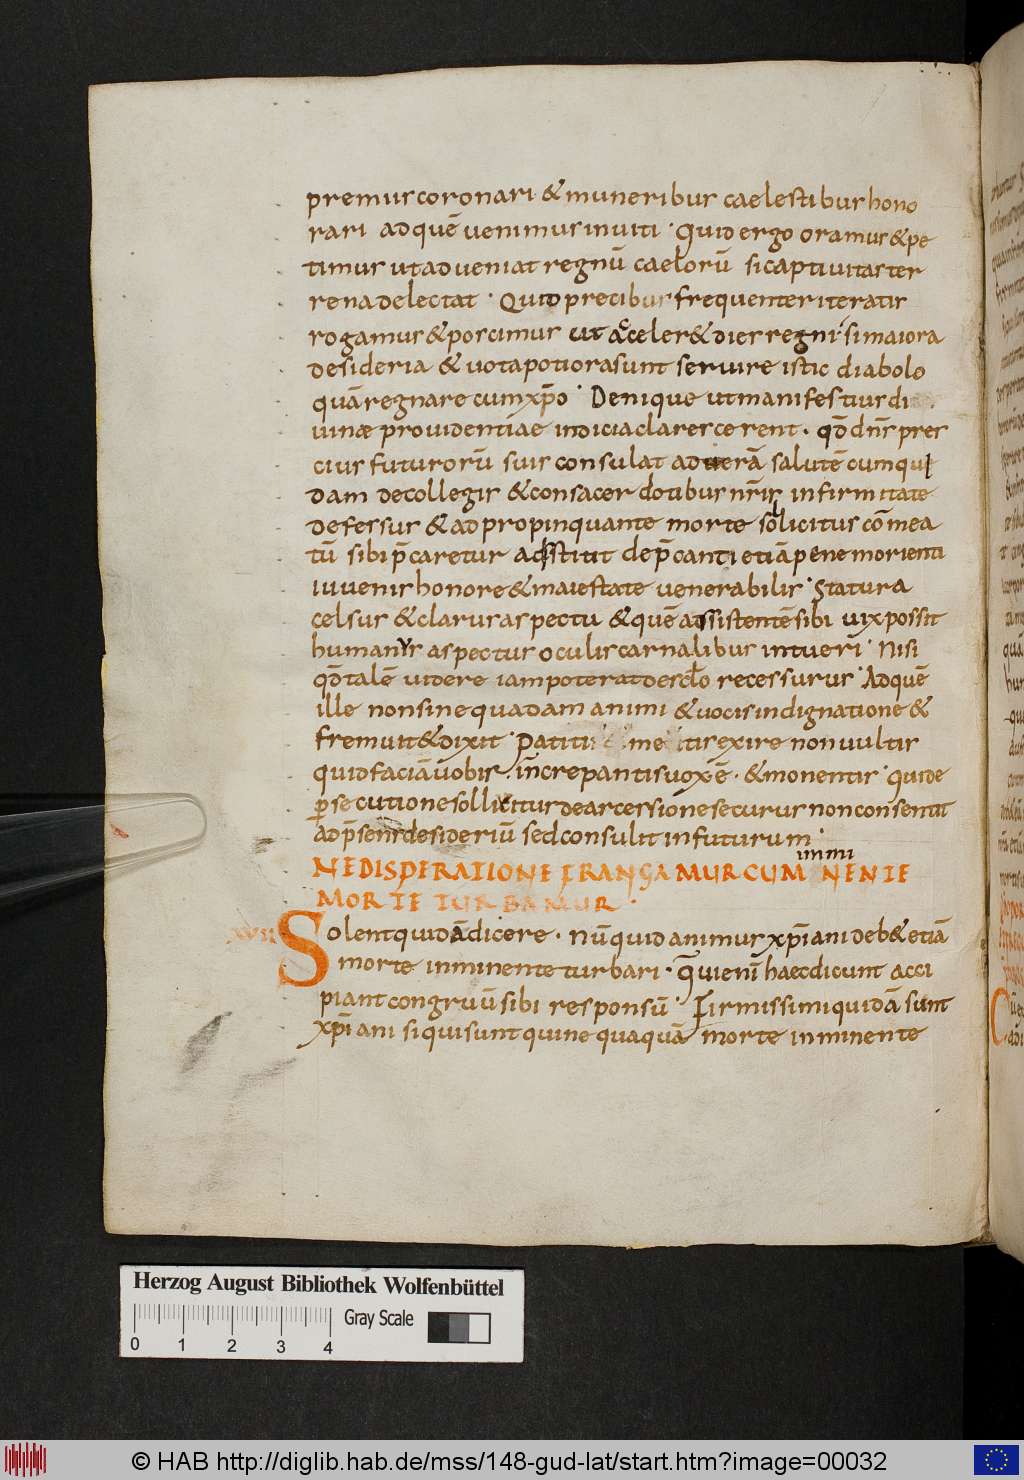 premur coronari · & muneribus caelestibus hono
rari ad quē uenimus inuiti · Quid ergo oramus & pe
timus ut adueniat regnū caelorū si captiuitas ter
rena delectat · Quid precibus frequenter iteratis
rogamus & poscimus ut acceler& dies regni si maiora
desideria & uota potiora sunt seruire istic diabolo
quā regnare cum xp̄o · Denique ut manifestius di
uinae prouidentiae indicia clarescerent · qđ dn̄s pres
cius futurorū suis consulat ad uerā salutē cum qui
dam de collegis & consacerdotibus nr̄is infirmitate
defessus & adpropinquante morte sollicitus cōmea
tū sibi p̄caretur adstitit dep̄canti et iā pene morienti
iuuenis honore & maiestate uenerabilis · Statura
celsus & clarus aspectu & quē assistentē sibi uix possit
humanus aspectus oculis carnalibus intueri · Nisi
qđ talē uidere iam poterat de sc̄lo recessurus · Adquē
ille non sine quadam animi & uocis indignatione &
fremuit & dixit · Pati ti me tis exire non uultis
quid faciā uobis increpantis uox ē · & monentis · qui de
ꝑsecutione solliciti de arcersione securi non consentit
ad p̄sens desideriū sed consulit in futurum ·
NE DISPERATIONE FRANGAMUR CUM
inmi
NENTE
MORTE TURBAMUR ·
XVII
Solent quidā dicere · nūquid animus xp̄iani deb& etiā
morte inminente turbari · Qui enī haec dicunt acci
piant congruū sibi responsū Firmissimi quidā sunt
xp̄iani si qui sunt qui nequaquā morte inminente
Herzog August Bibliothek Wolfenbüttel
Gray Scale
0 1 2 3 4
© HAB http://diglib.hab.de/mss/148-gud-lat/start.htm?image=00032